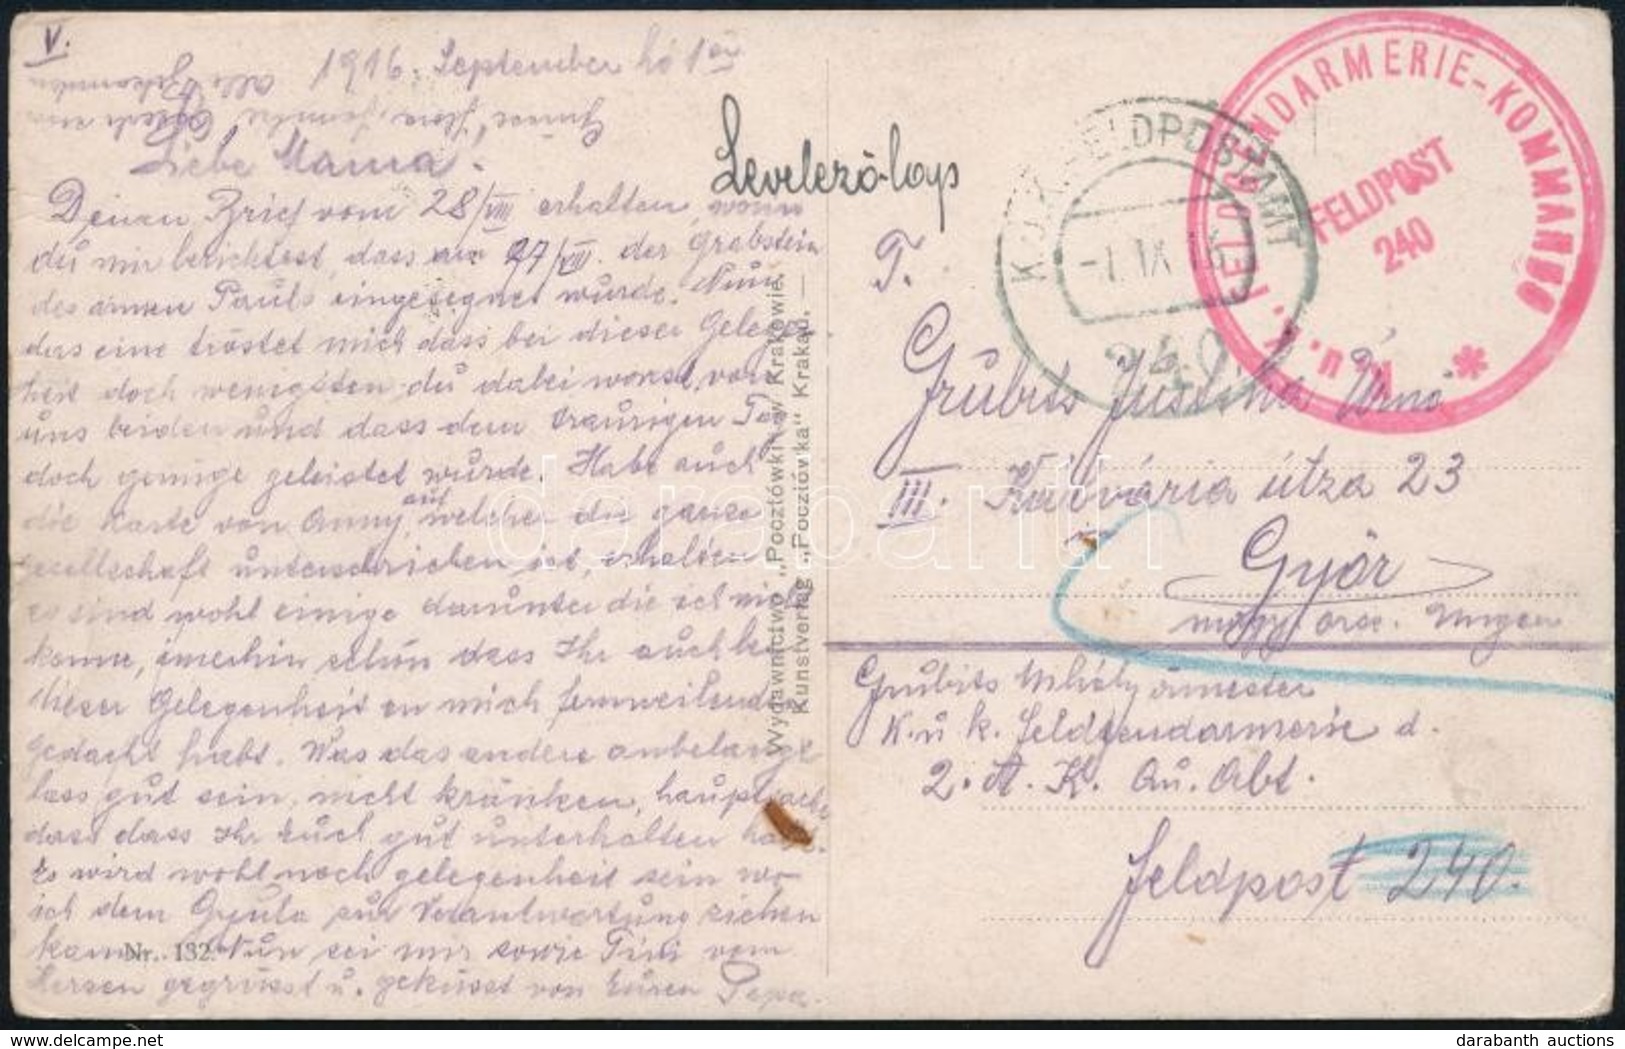 V.
1916. September hó 1én
Grüsse
alle Bekannten
Liebe Mama.
Deinen Brief vom 28/VIII erhalten, worin
du mir berichtest, dass am 27/VIII. der Grabstein
des armen Pauls eingesegnet wurde. Nun
das eine tröstet mich dass bei dieser Gelegen-
heit doch wenigsten du dabei warst, von
uns beiden und dass dem traurigen Tag
doch genüge geleistet wurde. Habe auch
die Karte von Anny, auf welcher die ganze
Gesellschaft unterschrieben ist, erhalten
es sind wohl einige darunter die ich nicht
kenne, imerhin schön dass Ihr auch bei
dieser Gelegenheit an mich fernweilenden
gedacht habt. Was das andere anbelangt
lass gut sein, nicht kränken, hauptsache
dass dass Ihr Euch gut unterhalten habt.
Es wird wohl noch gelegenheit sein wo
ich dem Gyula zur Verantwortung ziehen
kann. Nun sei mir sowie Tini vom
Herzen gegrüsst u. geküsst von Euren Papa.
Nr. 132.
Wydawnictwo „Pocztówki" w Krakowie.
Kunstverlag „Pocziówka" Krakau.
Levelező-lap
K.U.K. FELDPOSTAMT
-1. IX 16
240
K.u.K. FELDGENDARMERIE-KOMMANDO
FELDPOST
240
T.
Grubits Justina Úrnő
III. Kálvária útza 23
Győr
magy. orsz. Ungarn
Grubits Mihály őrmester
K. u. k. Feldgendarmerie d.
2. A. K. Qu. Abt.
Feldpost 240.
darabanth
darabanth auctions